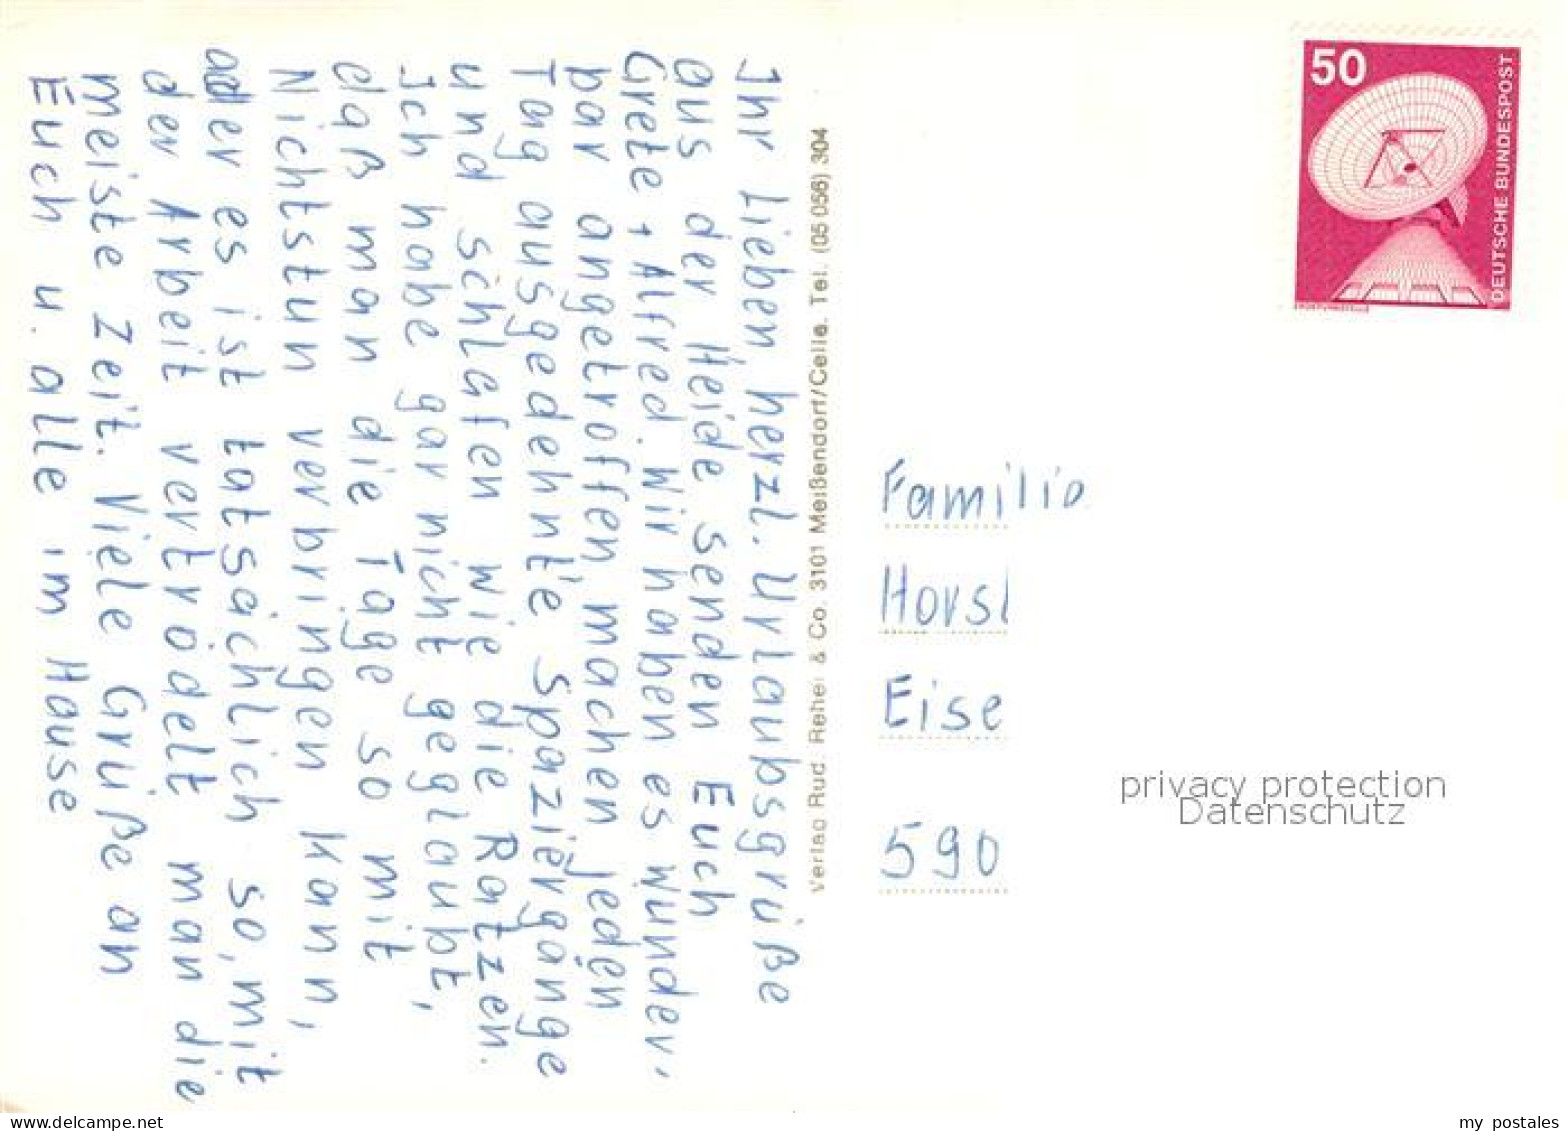 Ihr Lieben, herzl. Urlaubsgrüße
aus der Heide senden Euch
Grete + Alfred. Wir haben es wunder,
bar angetroffen, machen jeden
Tag ausgedehnte Spaziergänge
und schlafen wie die Ratzen.
Ich habe gar nicht geglaubt,
daß man die Tage so mit
Nichtstun verbringen kann,
ader es ist tatsächlich so, mit
der Arbeit vertrödelt man die
meiste Zeit. Viele Grüße an
Euch u. alle im Hause
Verlag Rud. Reher & Co. 3101 Meißendorf/Celle. Tel. (05 056) 304
50
DEUTSCHE BUNDESPOST
Familie
Horst
Eise
590
privacy protection
Datenschutz
my postales